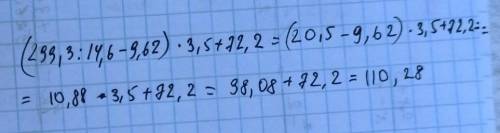 (299,3:14,6-9,62)·3,5+72,2=(20,5-9,62)·3,5+72,2=
= 10,88·3,5+72,2=38,08+72,2=110,28